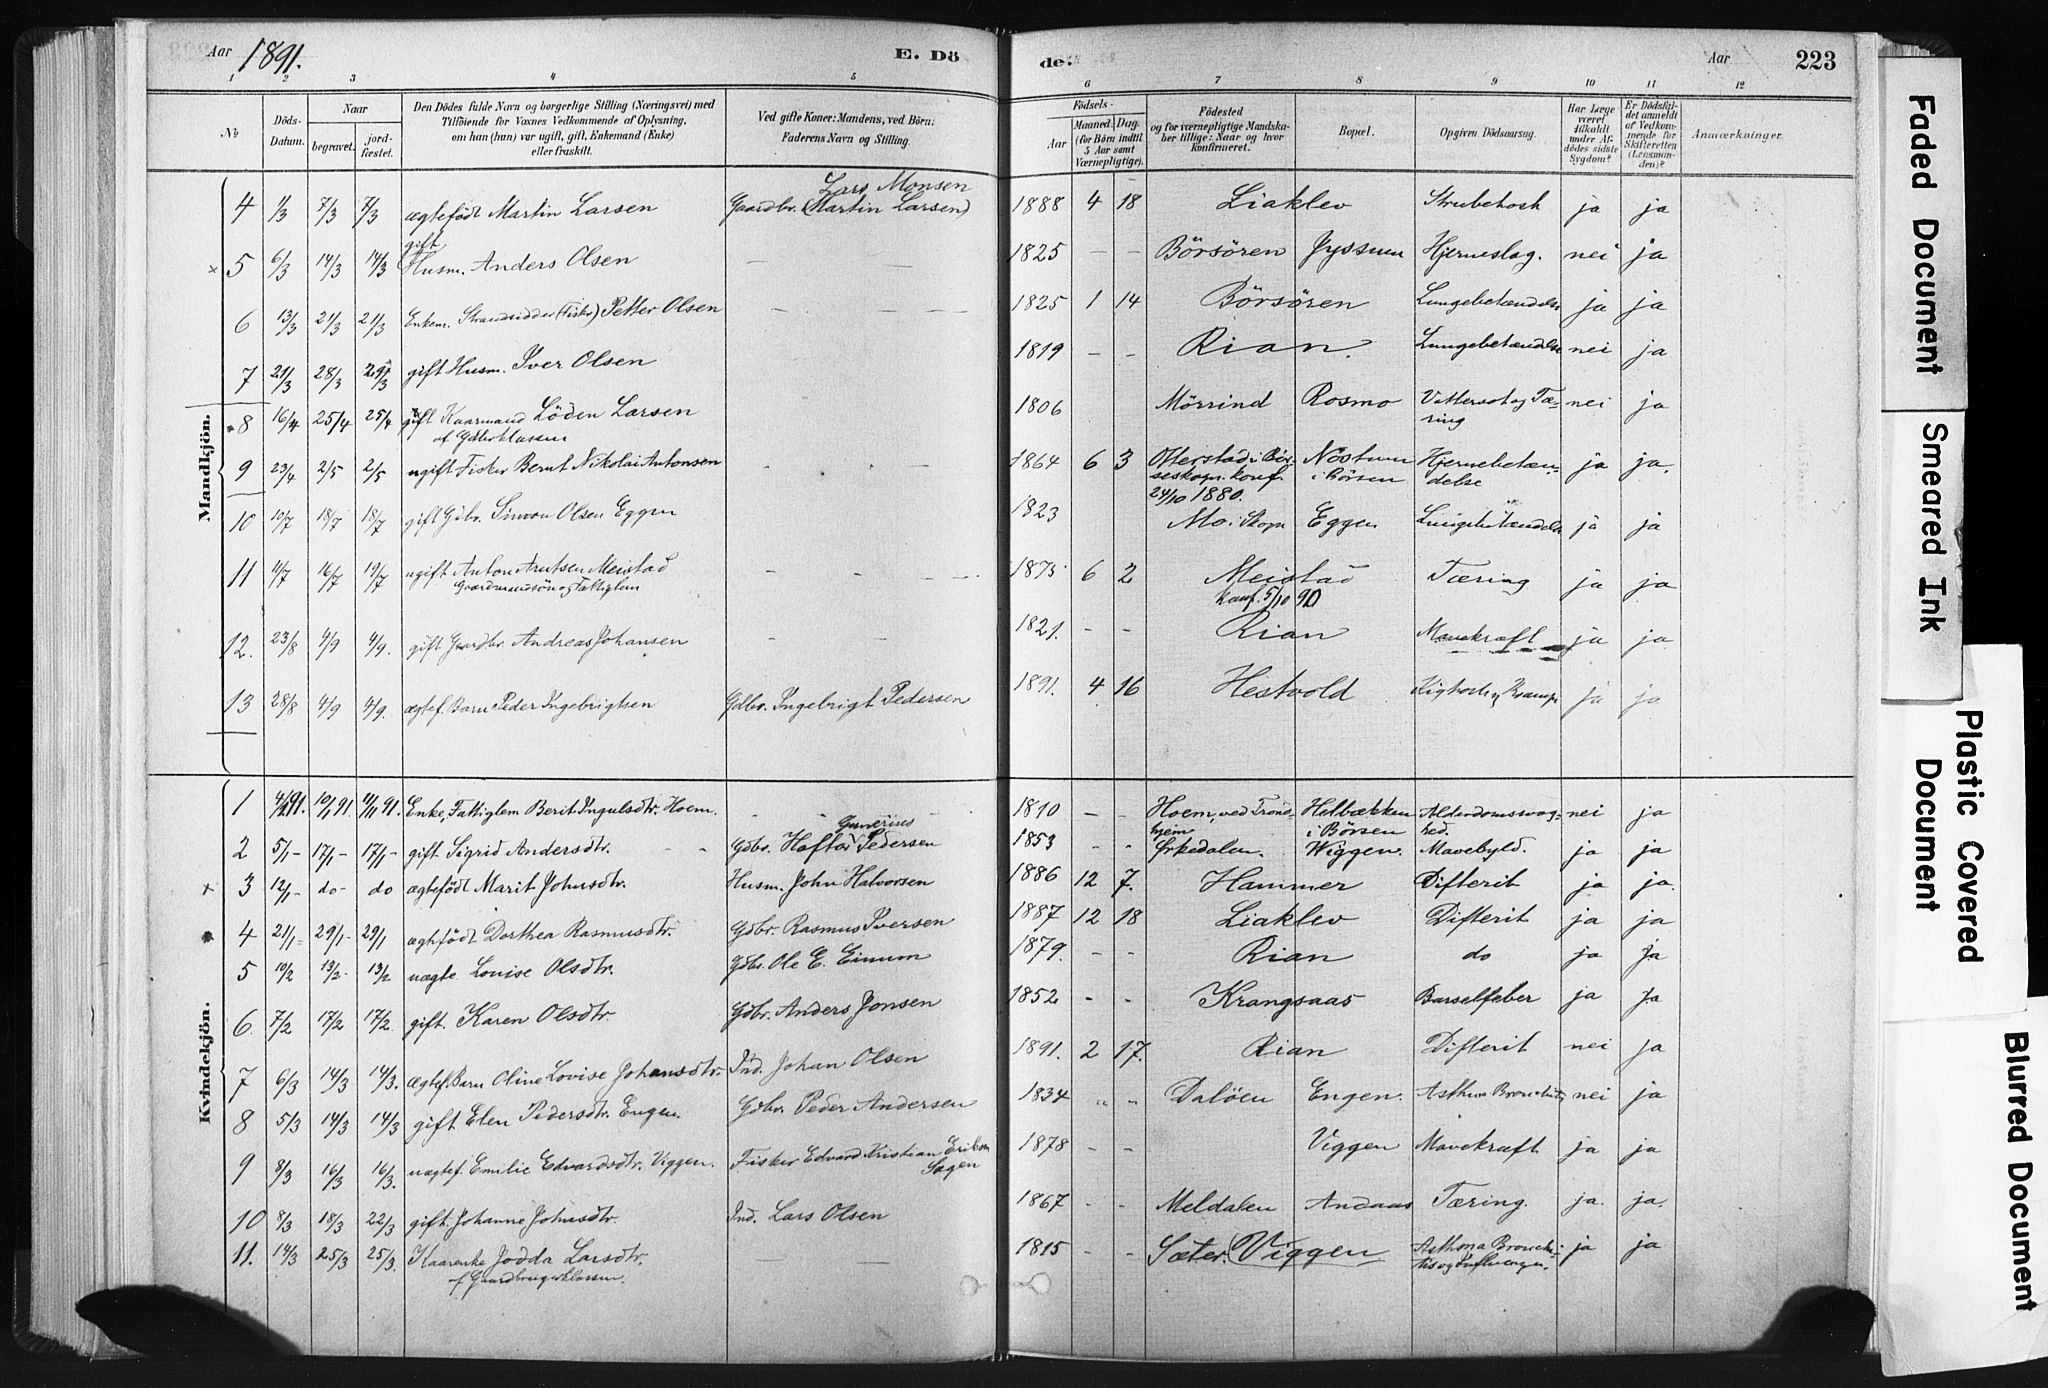 Aar 1891.
E. Döde.
Aar
223
1 2 3 4 5 6 7 8 9 10 11 12
No
Döds-Datum.
Naar
begravet. jordfæstet.
Den Dödes fulde Navn og borgerlige Stilling (Næringsvei) med
Tilföiende for Voxnes Vedkommende af Oplysning,
om han (hun) var ugift, gift, Enkemand (Enke)
eller fraskilt.
Ved gifte Koner: Mandens, ved Börn:
Faderens Navn og Stilling.
Födsels-
Aar Maaned. Dag.
(for Börn indtil 5 Aar samt Værnepligtige).
Födested
og for værnepligtige Mandskaber tillige: Naar og hvor Konfirmeret.
Bopæl.
Opgiven Dödsaarsag.
Har Læge været tilkaldt under Afdödes sidste Sygdom?
Er Dödsfaldet anmeldt af Vedkommende for Skifteretten (Lensmanden)?
Anmærkninger.
Mandkjön.
4 1/3 7/3 7/3 ægtefödt Martin Larsen Gaardbr. (Martin Larsen) Lars Monsen 1888 4 18 Liaklev Strubehost ja ja
× 5 6/3 14/3 14/3 gift Husm. Anders Olsen — — 1825 — — Börsören Jyssum Hjerneslag. nei ja
6 13/3 21/3 21/3 Enkem. Strandsidder (Fisker) Petter Olsen — — 1825 1 14 Börsören Lungebetændelse ja ja
7 21/3 28/3 29/3 gift Husm. Iver Olsen 1819 — — Rian. Lungebetændelse nei ja
8 16/4 25/4 25/4 gift Kaarmand Löden Larsen
af Gdbrklassen 1806 Mörrind Rosmo Vattersot og Tæring nei ja
9 23/4 2/5 2/5 ugift Fisker Bernt Nikolai Antonsen - - 1864 6 3 Otterstad i Börseskogn. konf. 24/10 1880. Nöstum i Börsen Hjernebetændelse ja ja.
10 10/7 18/7 18/7 gift Gdbr. Simon Olsen Eggen 1823 Mo i Skogn Eggen Lungebetændelse ja ja
11 11/7 16/7 19/7 ugift Anton Arntsen Meistad
Gaardmandssön og Fattiglem - - 1873 6 2 Meistad
konf. 5/10 90 Tæring ja ja
12. 23/8 4/9 4/9. gift Gaardbr. Andreas Johansen - - 1821. - - Rian Mavekræft ja ja
13 28/8 4/9 4/9. ægtef. Barn Peder Ingebrigtsen Gdbr. Ingebrigt Pedersen 1891. 4 16 Hestvold Kighoste og Krampe ja ja
Kvindekjön.
1 4/1 91. 10/1 91 11/1 91. Enke, Fattiglem Berit Ingulsdtr. Hoem. - - 1810 - - Hoem, ved Trondhjem Helbækken i Börsen Alderdomssvaghed. nei ja
2 5/1- 17/1- 17/1- gift Sigrid Andersdtr. Gdbr. Haftor Gunerius Pedersen 1853 - - Örkedalen. Wiggen. Mavebyld. ja ja
× 3 12/1- do- do ægtefödt Marit Johnsdtr. Husm. John Halvorsen 1886 12 7. Hammer Difterit ja ja.
4 21/1- 29/1- 29/1 ægtefödt Dorthea Rasmusdtr. Gdbr. Rasmus Iversen 1887 12 18 Liaklev Difterit ja ja
5 10/2 13/2- 13/2 uægte Louise Olsdtr. Gdbr. Ole E. Einum 1879. - - Rian do ja ja
6 7/2 17/2 17/2. gift. Karen Olsdtr. Gdbr. Anders Jonsen 1852 - - Krangsaas Barselfeber ja ja
7 6/3 14/3 14/3. ægtef. Barn Oline Lovise Johansdtr. Ind. Johan Olsen 1891. 2 17. Rian Difterit nei ja
8 5/3 14/3 14/3 gift Elen Pedersdtr. Engen. Gdbr. Peder Andersen 1834 - - Dalöen Engen. Asthma Bronchitis nei ja
9 8/3 16/3 16/3. uægtef. Emilie Edvardsdtr. Viggen. Fisker Edvard Kristian Eriksen Sagen 1878 - - Viggen Mavekræft ja ja
10 8/3 18/3 22/3 gift. Johanne Johnsdtr. Ind. Lars Olsen 1867 - - Meldalen Andaas Tæring. ja. ja.
11. 14/3 25/3 25/3. Kaarenke Jodda Larsdtr.
af Gaardbrugerklassen. — — 1815 - - Sæter. Viggen Asthma Bronchitis og Influenza. ja ja
Faded Document
Smeared Ink
Plastic Covered Document
Blurred Document